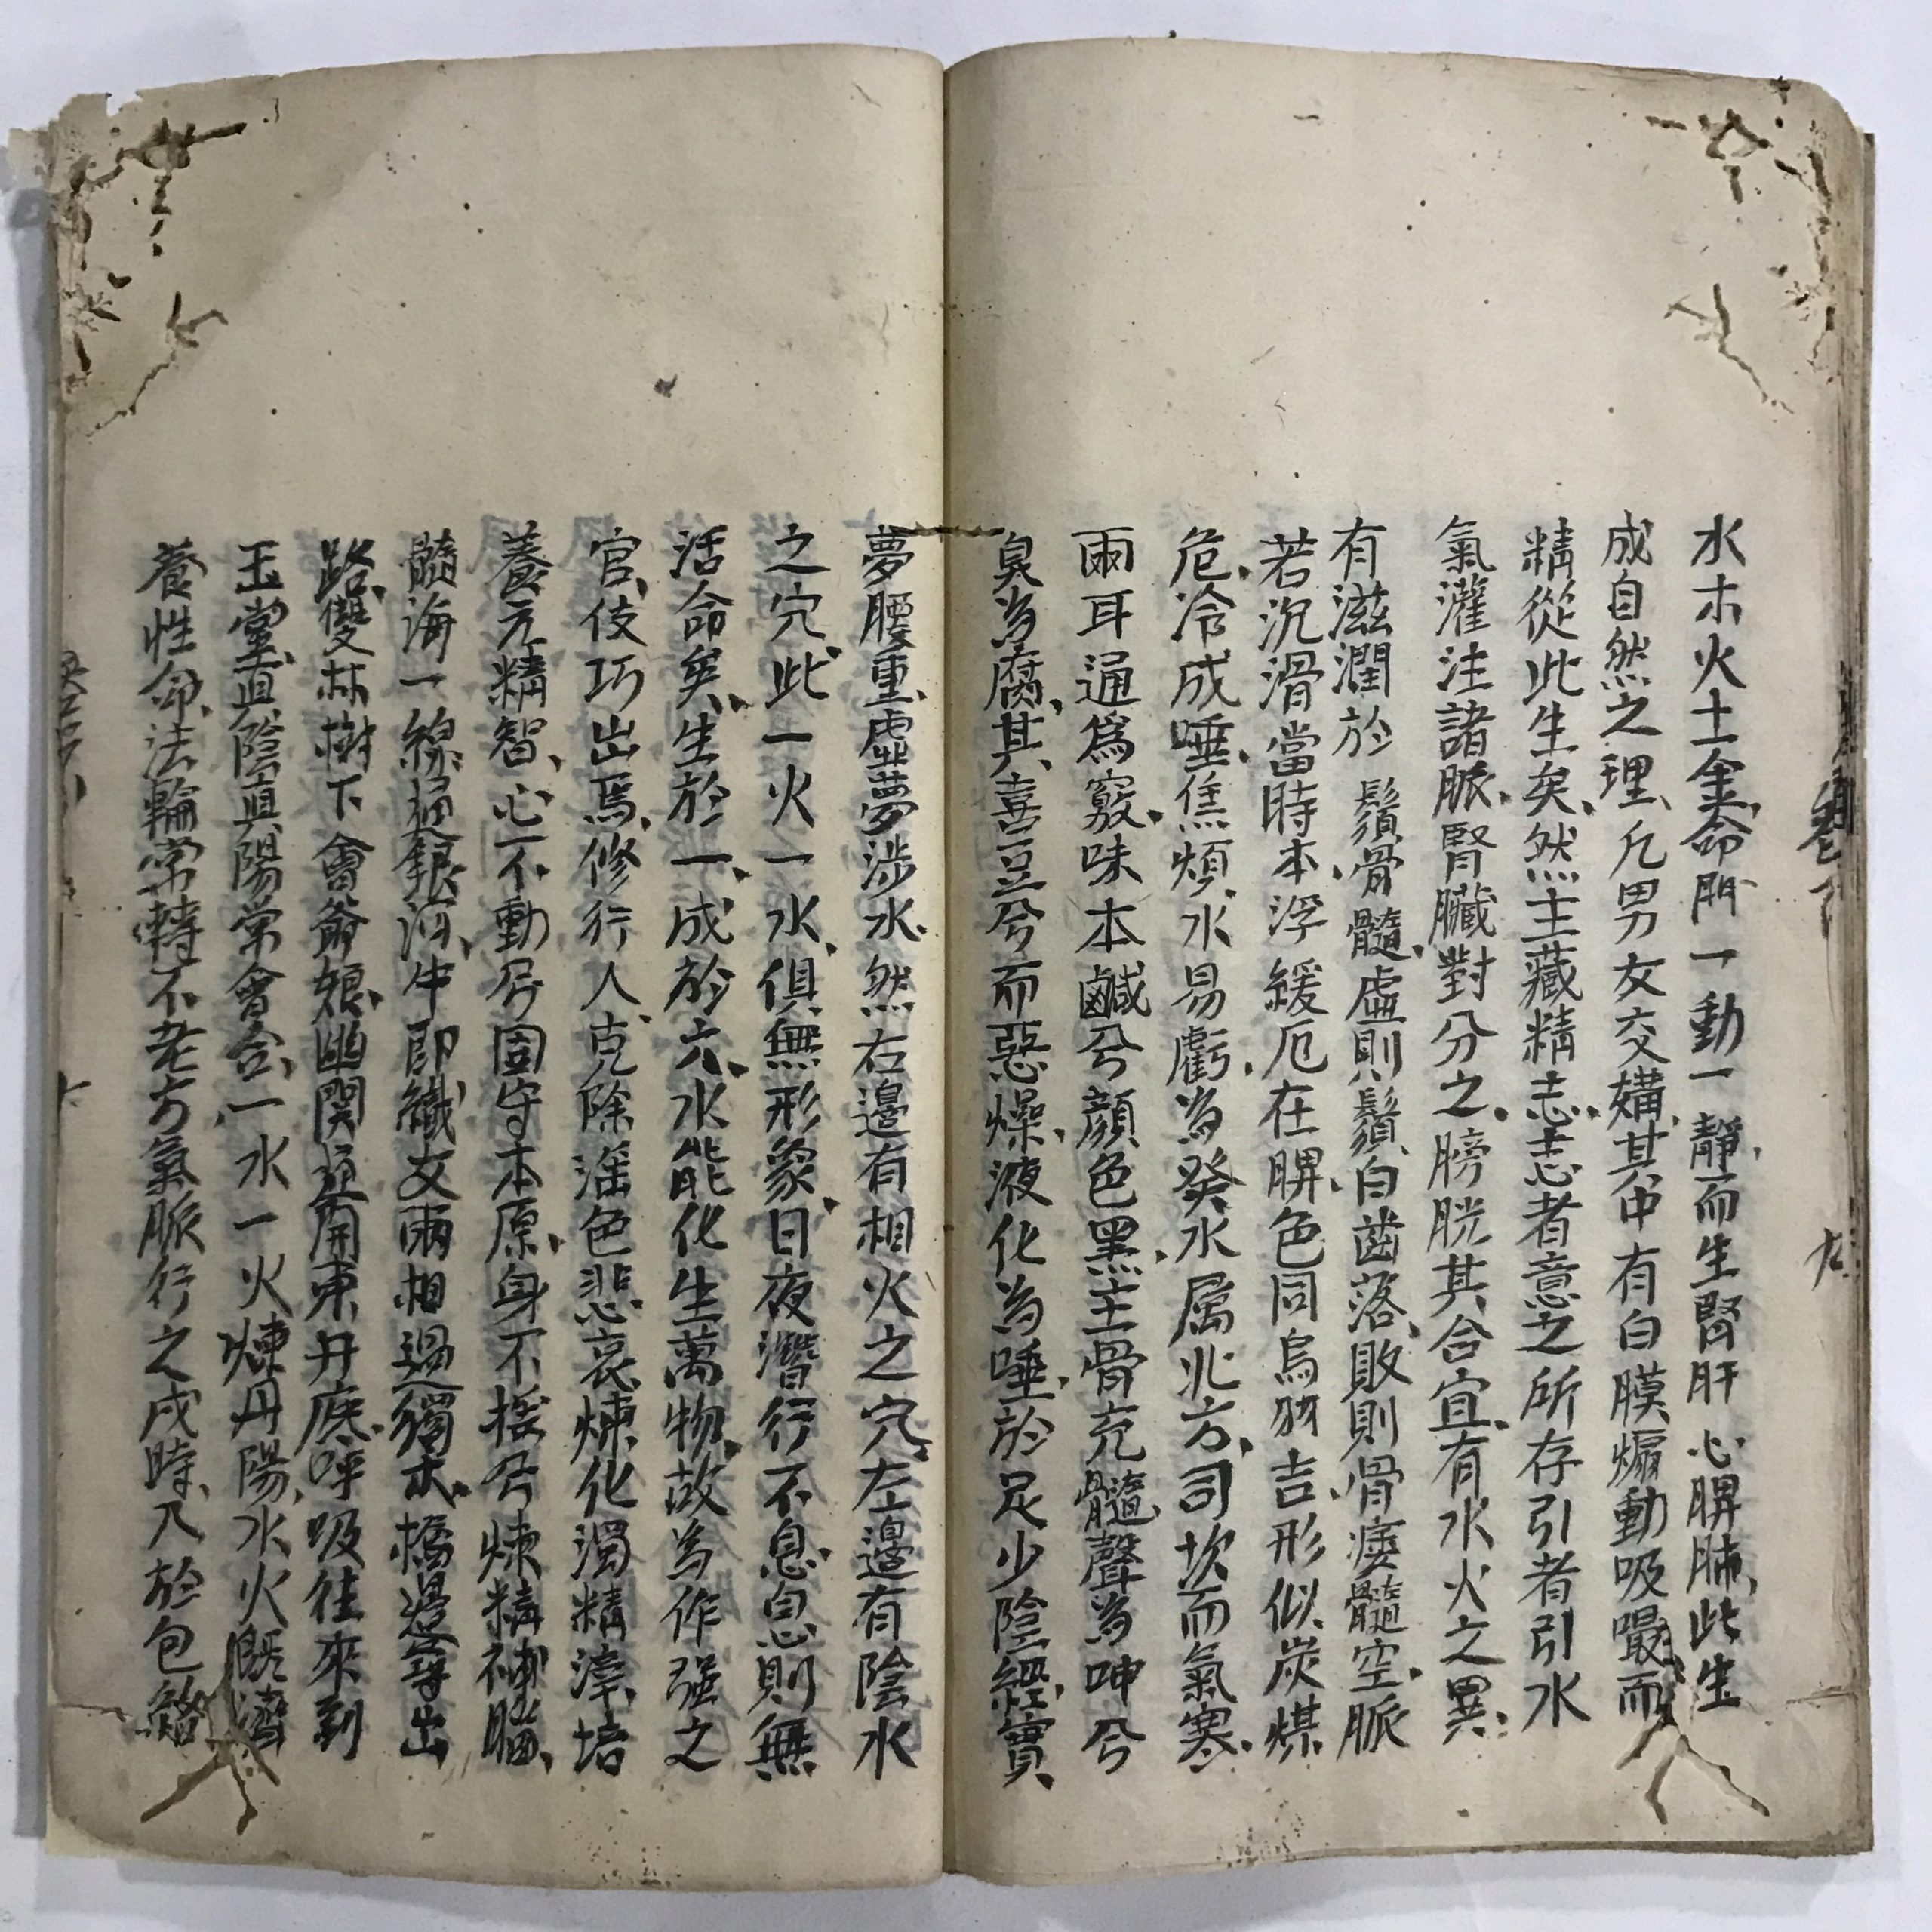 水木火土金、命門一動一靜、而生腎肝心脾肺、此生
成自然之理、凡男女交媾、其中有白膜煽動吸嘬而
精從此生矣、然主藏精志、志者意之所存引者引水
氣灌注諸脈、腎臟對分之、膀胱其合宜、有水火之異、
有滋潤於鬚骨髓、虛則鬚白齒落、敗則骨痿髓空、脈
若沉滑當時本、浮緩厄在脾、色同烏羽吉、形似炭煤
危、冷成唾、焦煩、水易虧、為癸水屬北方、司坎而氣寒、
兩耳通為竅、味本鹹兮顏色黑、主骨充髓聲為呻兮
臭為腐、其喜豆兮而惡燥、液化為唾、於足少陰經、實
夢腰重、虛夢涉水、然右邊有相火之穴、左邊有陰水
之穴、此一火一水、俱無形象、日夜潛行不息、息則無
活命矣、生於一、成於六、水能化生萬物、故為作强之
官、伎巧出焉、修行人、克除滛色悲哀、煉化濁精滓、培
養元精智、心不動兮固守本原、身不搖兮煉精補腦、
髓海一線通銀河、牛郎織女兩相過、獨木橋邊尋出
路、雙林樹下會爺娘、幽関㪅開東丹底、呼吸往來到
玉堂、真陰真陽常會合、一水一火煉丹陽、水火既濟
養性命、法輪常轉不老方、氣脈行之戌時、入於包絡
卷下